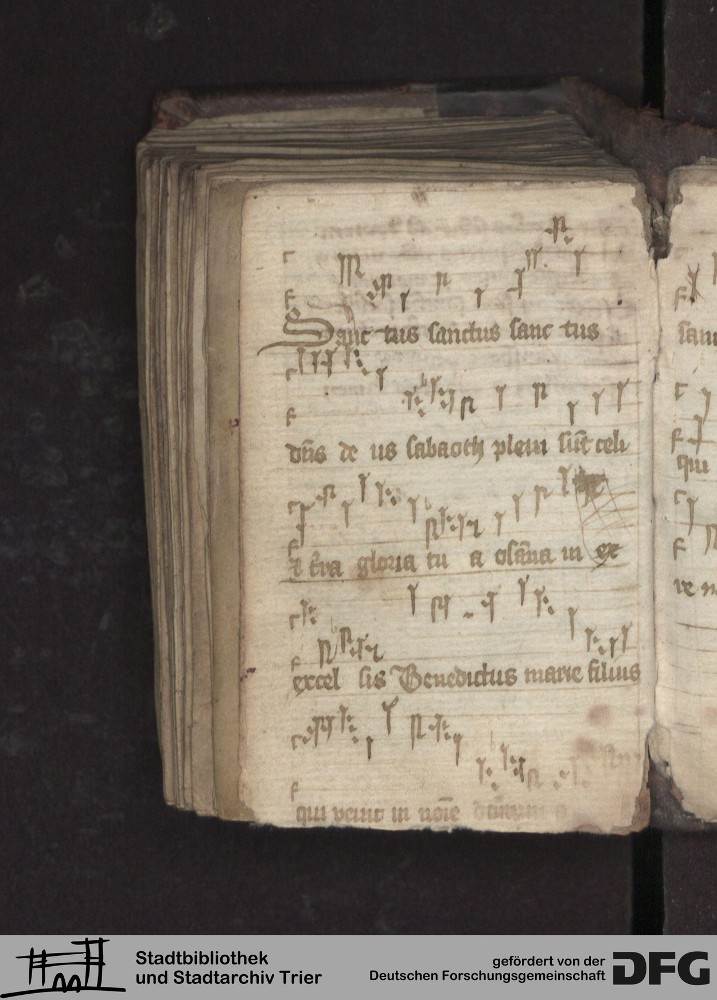 Sanc tus sanctus sanc tus
dn̄s de us sabaoth pleni sūt celi
et t̄ra gloria tu a osāna in ex
excel sis Benedictus marie filius
qui venit in noīe
sanc
qui
ve n
Stadtbibliothek
und Stadtarchiv Trier
gefördert von der
Deutschen Forschungsgemeinschaft
DFG